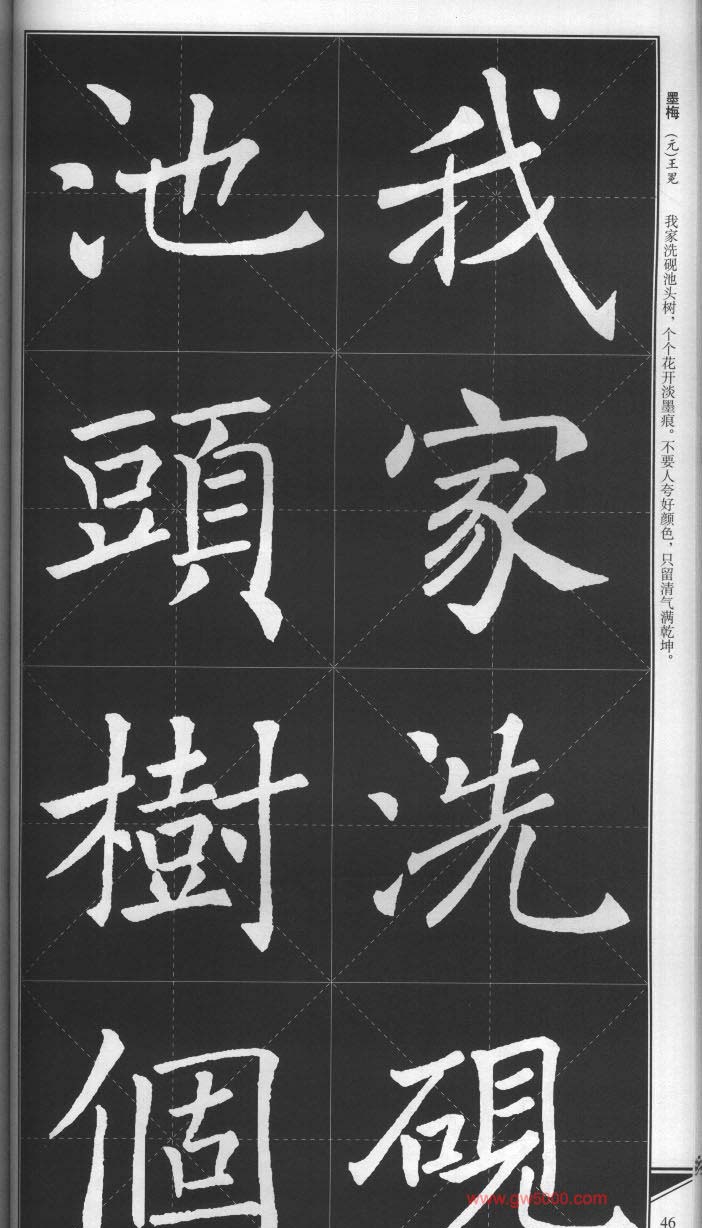 墨梅 （元）王冕 我家洗砚池头树，个个花开淡墨痕。不要人夸好颜色，只留清气满乾坤。
我家洗硯
池頭樹個
www.gw5000.com
46